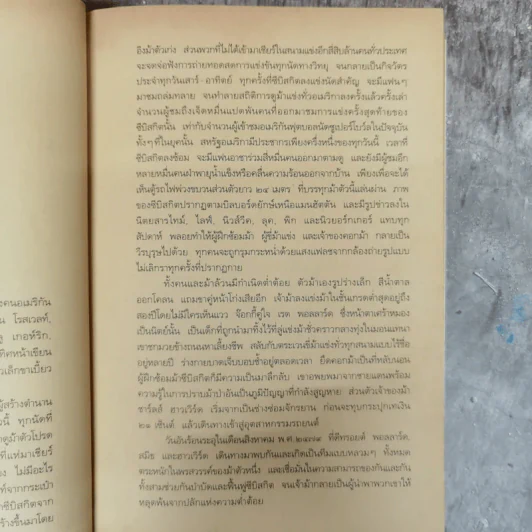 งคนอเมริกัน
น โรสเวลท์,
ลู เกอห์ริก,
ทิศหน้าเขียน
เลิกขาเบี้ยว
ผู้สร้างตำนาน
วนี้ ทุกนัดที่
ดูม้าตัวโปรด
แห่มาเชียร์
ง ไม่มีอะไร
ท์จากกระเป๋า
ซีบิสกิตจาก
ร้างขึ้นมาโดย
อิงม้าตัวเก่ง ส่วนพวกที่ไม่ได้เข้ามาเชียร์ในสนามแข่งอีกสี่สิบล้านคนทั่วประเทศ
จะจดจ่อฟังการถ่ายทอดสดการแข่งขันทุกนัดทางวิทยุ จนกลายเป็นกิจวัตร
ประจำทุกวันเสาร์-อาทิตย์ ทุกครั้งที่ซีบิสกิตลงแข่งนัดสำคัญ จะมีแฟนๆ
มาชมถล่มทลาย จนทำลายสถิติการดูม้าแข่งทั่วอเมริกาลงครั้งแล้วครั้งเล่า
จำนวนผู้ชมถึงเจ็ดหมื่นแปดพันคนที่ออกมาชมการแข่งครั้งสุดท้ายของ
ซีบิสกิตนั้น เท่ากับจำนวนผู้เข้าชมอเมริกันฟุตบอลนัดซูเปอร์โบว์ลในปัจจุบัน
ทั้งๆที่ในยุคนั้น สหรัฐอเมริกามีประชากรเพียงครึ่งหนึ่งของทุกวันนี้ เวลาที่
ซีบิสกิตลงซ้อม จะมีแฟนอาชาร่วมสี่หมื่นคนออกมาตามดู และยังมีผู้ชมอีก
หลายหมื่นคนฝ่าพายุน้ำแข็งหรือคลื่นความร้อนออกจากบ้าน เพียงเพื่อจะได้
เห็นตู้รถไฟพ่วงขบวนส่วนตัวยาว ๒๔ เมตร ที่บรรทุกม้าตัวนี้แล่นผ่าน ภาพ
ของซีบิสกิตปรากฏตามบิลบอร์ดยักษ์เหนือแมนฮัตตัน และมีรูปข่าวลงใน
นิตยสารไทม์, ไลฟ์, นิวส์วีค, ลุค, พิก และนิวยอร์กเกอร์ แทบทุก
สัปดาห์ พลอยทำให้ผู้ฝึกซ้อมม้า ผู้ขี่ม้าแข่ง และเจ้าของคอกม้า กลายเป็น
วีรบุรุษไปด้วย ทุกคนจะถูกรุมกระหน่ำด้วยแสงแฟลชจากกล้องถ่ายรูปแบบ
ไม่เลิกราทุกครั้งที่ปรากฏกาย
ทั้งคนและม้าล้วนมีกำเนิดต่ำต้อย ตัวม้าเองรูปร่างเล็ก สีน้ำตาล
ออกโคลน แถมขาคู่หน้าโก่งเสียอีก เจ้าม้าลงแข่งม้าในชั้นเกรดต่ำสุดอยู่ถึง
สองปีโดยไม่มีใครเห็นแวว จ๊อกกี้คู่ใจ เรด พอลลาร์ด ซึ่งหน้าตาเคร้าหมอง
เป็นนิตย์นั้น เป็นเด็กที่ถูกนำมาทิ้งไว้ที่ลู่แข่งม้าชั่วคราวกลางทุ่งในมอนแทนา
เขาชกมวยข้างถนนหาเลี้ยงชีพ สลับกับตระเวนขี่ม้าแข่งทั่วทุกสนามแบบไร้ชื่อ
อยู่หลายปี ร่างกายบาดเจ็บบอบช้ำอยู่ตลอดเวลา ยึดคอกม้าเป็นที่หลับนอน
ผู้ฝึกซ้อมม้าซีบิสกิตก็มีความเป็นมาลึกลับ เขาอพยพมาจากชายแดนพร้อม
ความรู้ในการปราบม้าป่าอันเป็นภูมิปัญญาที่กำลังสูญหาย ส่วนตัวเจ้าของม้า
ชาร์ลส์ ฮาวเวิร์ด เริ่มจากเป็นช่างซ่อมจักรยาน ก่อนจะทุบกระปุกเทเงิน
๒๑ เซ็นต์ แล้วเดินทางเข้าสู่อุตสาหกรรมรถยนต์
วันอันร้อนระอุในเดือนสิงหาคม พ.ศ.๒๔๗๙ ที่ดีทรอยต์ พอลลาร์ด,
สมิธ และฮาวเวิร์ด เดินทางมาพบกันและเกิดเป็นทีมแบบหลวมๆ ทั้งหมด
ตระหนักในพรสวรรค์ของม้าตัวหนึ่ง และเชื่อมั่นในความสามารถของกันและกัน
ทั้งสามช่วยกันบำบัดและฟื้นฟูซีบิสกิต จนเจ้าม้ากลายเป็นผู้นำพาพวกเขาให้
หลุดพ้นจากปลักแห่งความต่ำต้อย